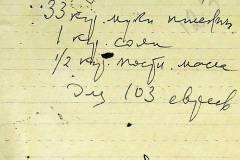 33 кгр. муки пшенич.
1 кгр. соли
1/2 кгр. постн. масла
Для 103 евреев